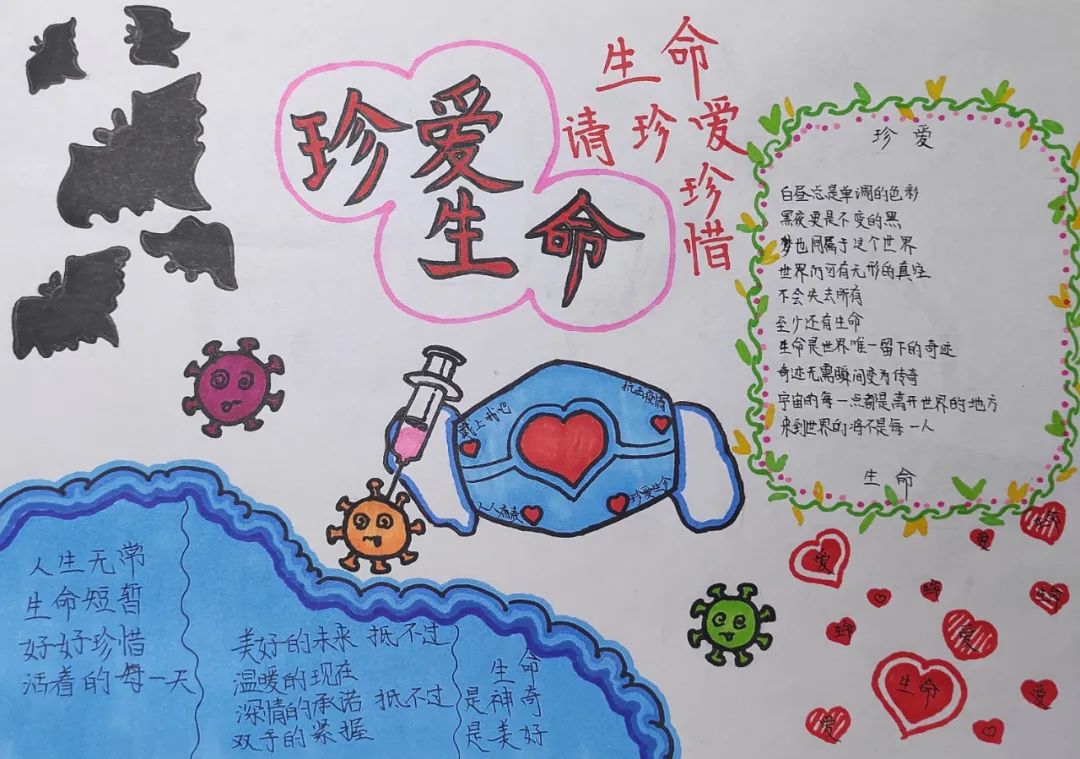 珍爱
生命
生命
请珍爱
珍惜
珍爱
白昼总是单调的色彩
黑夜更是不变的黑
梦也同属于这个世界
世界仍可有无形的真空
不会失去所有
至少还有生命
生命是世界唯一留下的奇迹
奇迹无需瞬间变为传奇
宇宙的每一点都是离开世界的地方
来到世界的将不是每一人
生命
戴上我吧
抗击疫情
人人有责
珍爱生命
人生无常
生命短暂
好好珍惜
活着的每一天
美好的未来 抵不过
温暖的现在
深情的承诺 抵不过
双手的紧握
生命
是神奇
是美好
爱
爱
生命
爱
生命
爱
爱